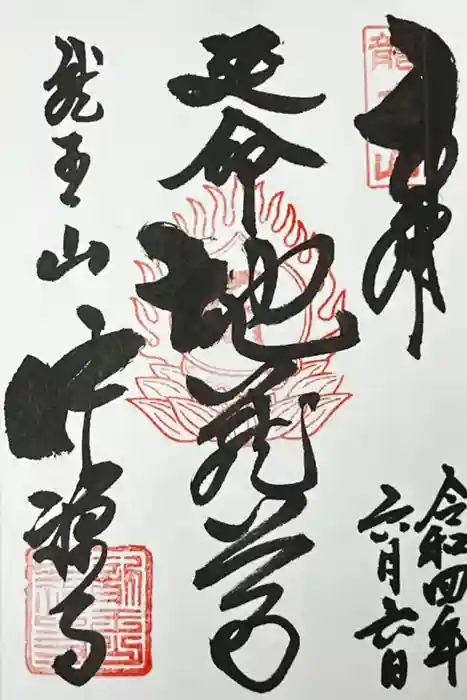 奉拝
令和四年
六月六日
延命地蔵尊
龍王山
中禅寺